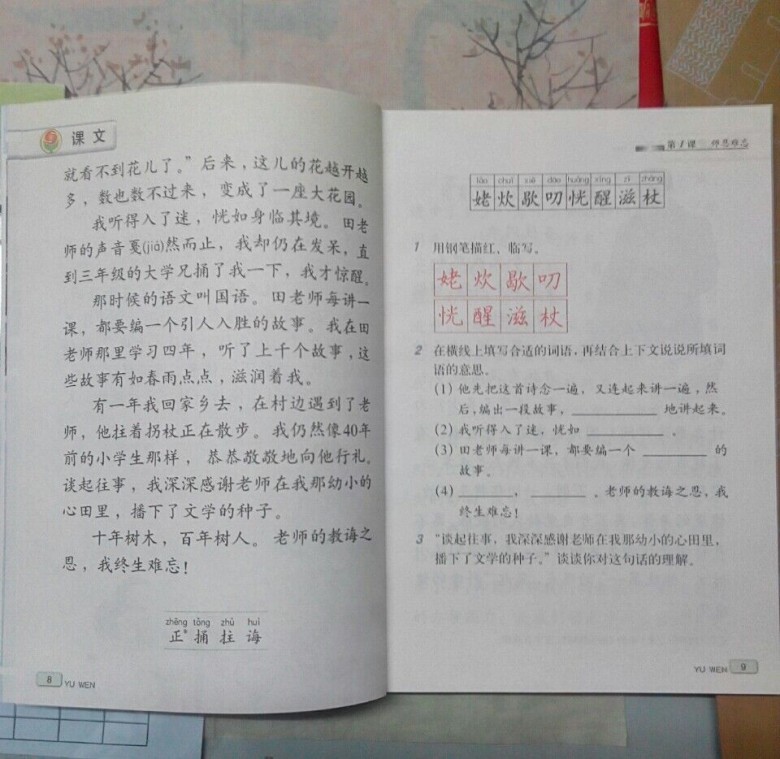 课文
就看不到花儿了。”后来，这儿的花越开越
多，数也数不过来，变成了一座大花园。
我听得入了迷，恍如身临其境。田老
师的声音戛(jiá)然而止，我却仍在发呆，直
到三年级的大学兄捅了我一下，我才惊醒。
那时候的语文叫国语。田老师每讲一
课，都要编一个引人入胜的故事。我在田
老师那里学习四年，听了上千个故事，这
些故事有如春雨点点，滋润着我。
有一年我回家乡去，在村边遇到了老
师，他拄着拐杖正在散步。我仍然像40年
前的小学生那样，恭恭敬敬地向他行礼。
谈起往事，我深深感谢老师在我那幼小的
心田里，播下了文学的种子。
十年树木，百年树人。老师的教诲之
恩，我终生难忘！
zhēng tǒng zhǔ huì
正* 捅 拄 诲
8 YU WEN
第1课 师恩难忘
lǎo chuī xiē dāo huǎng xǐng zī zhàng
姥炊歇叨恍醒滋杖
1 用钢笔描红、临写。
姥炊歇叨
恍醒滋杖
2 在横线上填写合适的词语，再结合上下文说说所填词
语的意思。
(1) 他先把这首诗念一遍，又连起来讲一遍，然
后，编出一段故事，________地讲起来。
(2) 我听得入了迷，恍如________。
(3) 田老师每讲一课，都要编一个________的
故事。
(4) ________，________。老师的教诲之恩，我
终生难忘！
3 “谈起往事，我深深感谢老师在我那幼小的心田里，
播下了文学的种子。”谈谈你对这句话的理解。
YU WEN 9